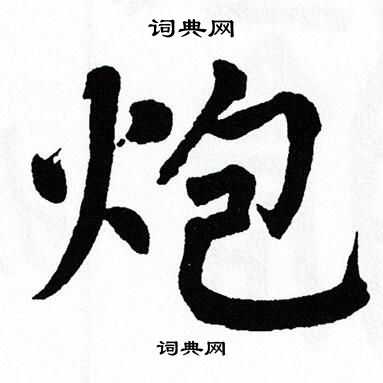 词典网
炮
词典网